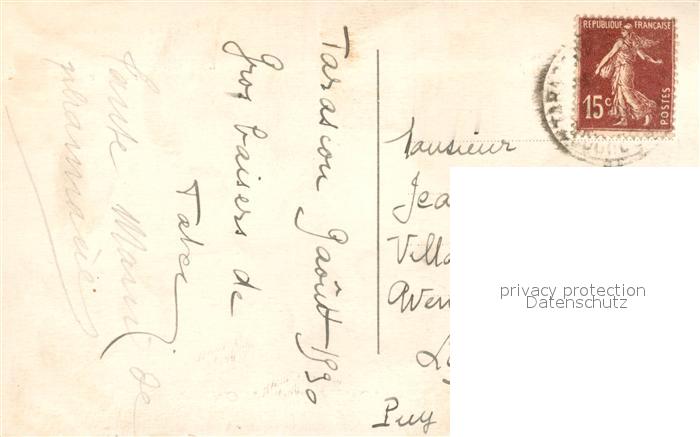 Tarascon 9 août 1930
Gros baisers de
Taber
Tante Marie de
pharmacie
RÉPUBLIQUE FRANÇAISE
15c
POSTES
TARA
Monsieur
Jea
Villa
Aven
Puy
privacy protection
Datenschutz